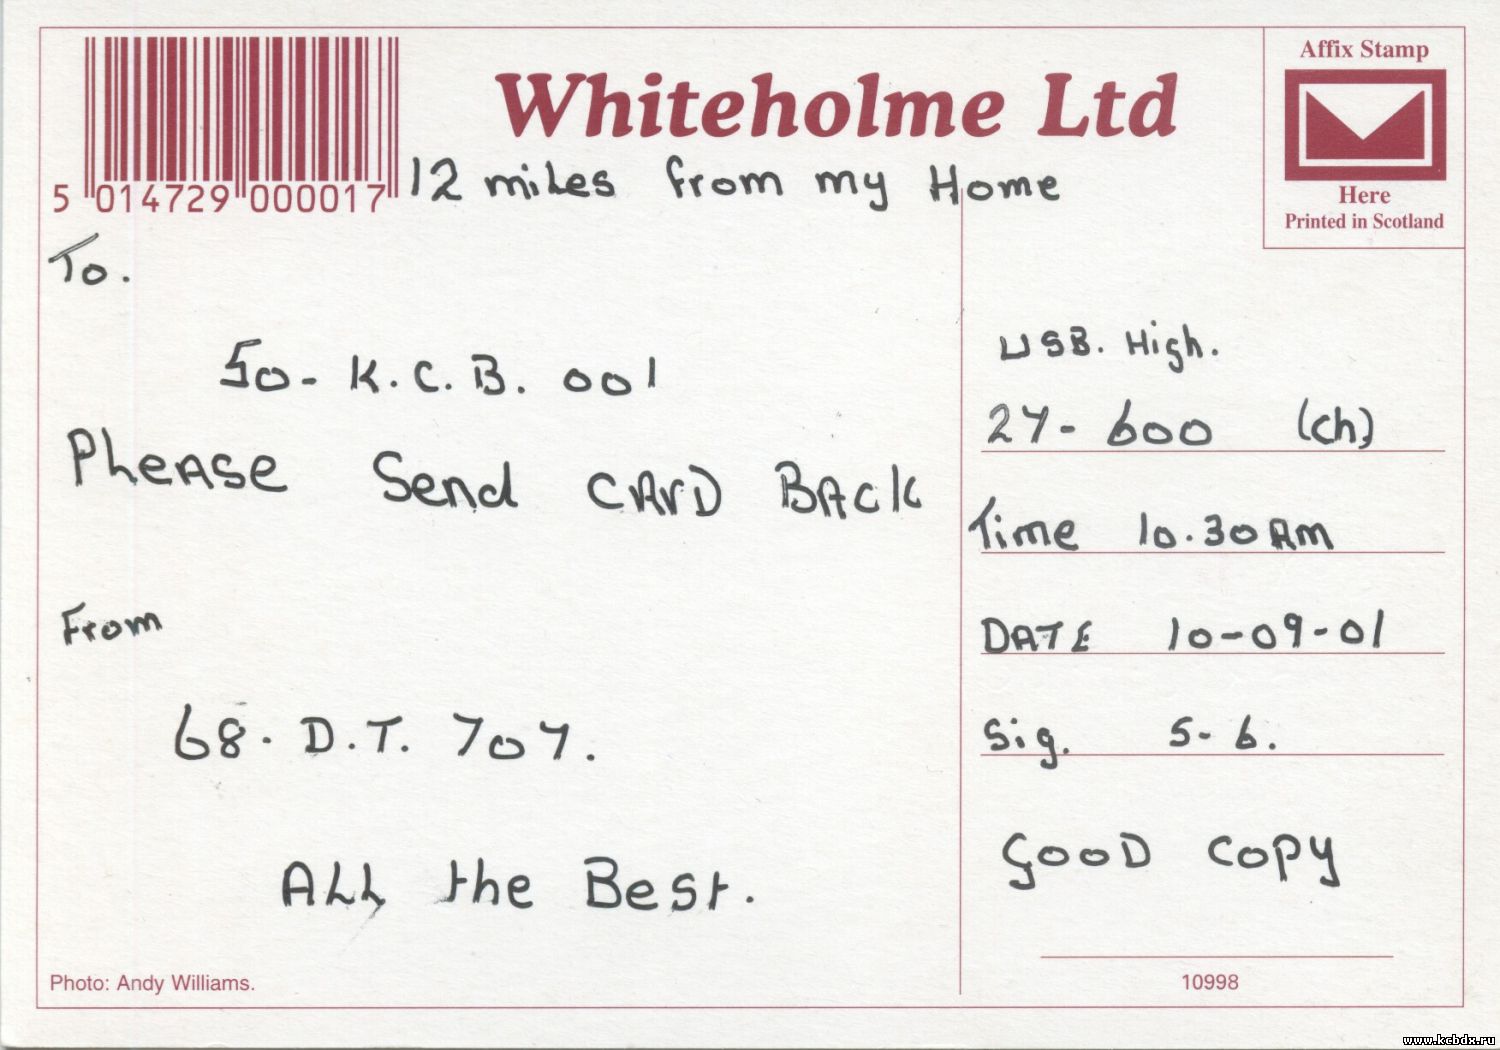 Affix Stamp
Whiteholme Ltd
5 014729 000017
12 miles from my Home
Here
Printed in Scotland
To.
50- K.C.B. 001
PLEASE Send CARD BACK
From
68. D.T. 707.
ALL the Best.
Photo: Andy Williams.
USB. High.
27- 600 (ch)
Time 10.30 AM
DATE 10-09-01
Sig. 5- 6.
GOOD COPY
10998
www.kcbdx.ru